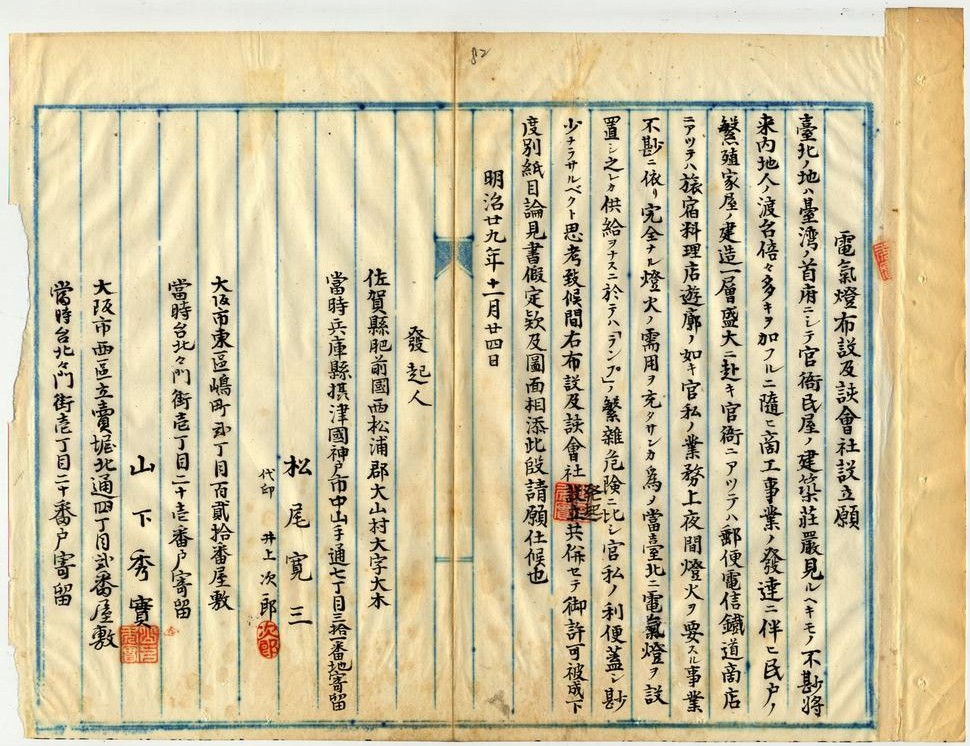 82
電氣燈布設及談會社設立願
臺北ノ地ハ臺湾ノ首府ニシテ官衙民屋ノ建築荘嚴見ルヘキモノ不尠將
来内地人ノ渡台倍々多キヲ加フルニ隨ヒ商工事業ノ發達ニ伴ヒ民戸ノ
繁殖家屋ノ建造一層盛大ニ赴キ官衙ニアツテハ郵便電信鐵道商店
ニアツテハ旅宿料理店遊廓ノ如キ官私ノ業務上夜間燈火ヲ要スル事業
不尠ニ依リ完全ナル燈火ノ需用ヲ充タサンカ為メ當臺北ニ電氣燈ヲ設
置シ之レカ供給ヲナスニ於テハ「ランプ」ノ繁雑危険ニ比シ官私ノ利便蓋シ尠
少ナラサルベクト思考致候間右布設及談會社設立発起共併セテ御許可被成下
度別紙目論見書假定欵及圖面相添此段請願仕候也
明治廿九年十一月廿四日
發起人
佐賀縣肥前國西松浦郡大山村大字大木
當時兵庫縣摂津國神戸市中山手通七丁目三拾一番地寄留
松尾寛三
代印 井上次郎
大阪市東區嶋町弐丁目百貳拾番屋敷
當時台北々門街壱丁目二十壱番戸寄留
山下秀實
大阪市西區立賣堀北通四丁目弐番屋敷
當時台北々門街壱丁目二十番戸寄留